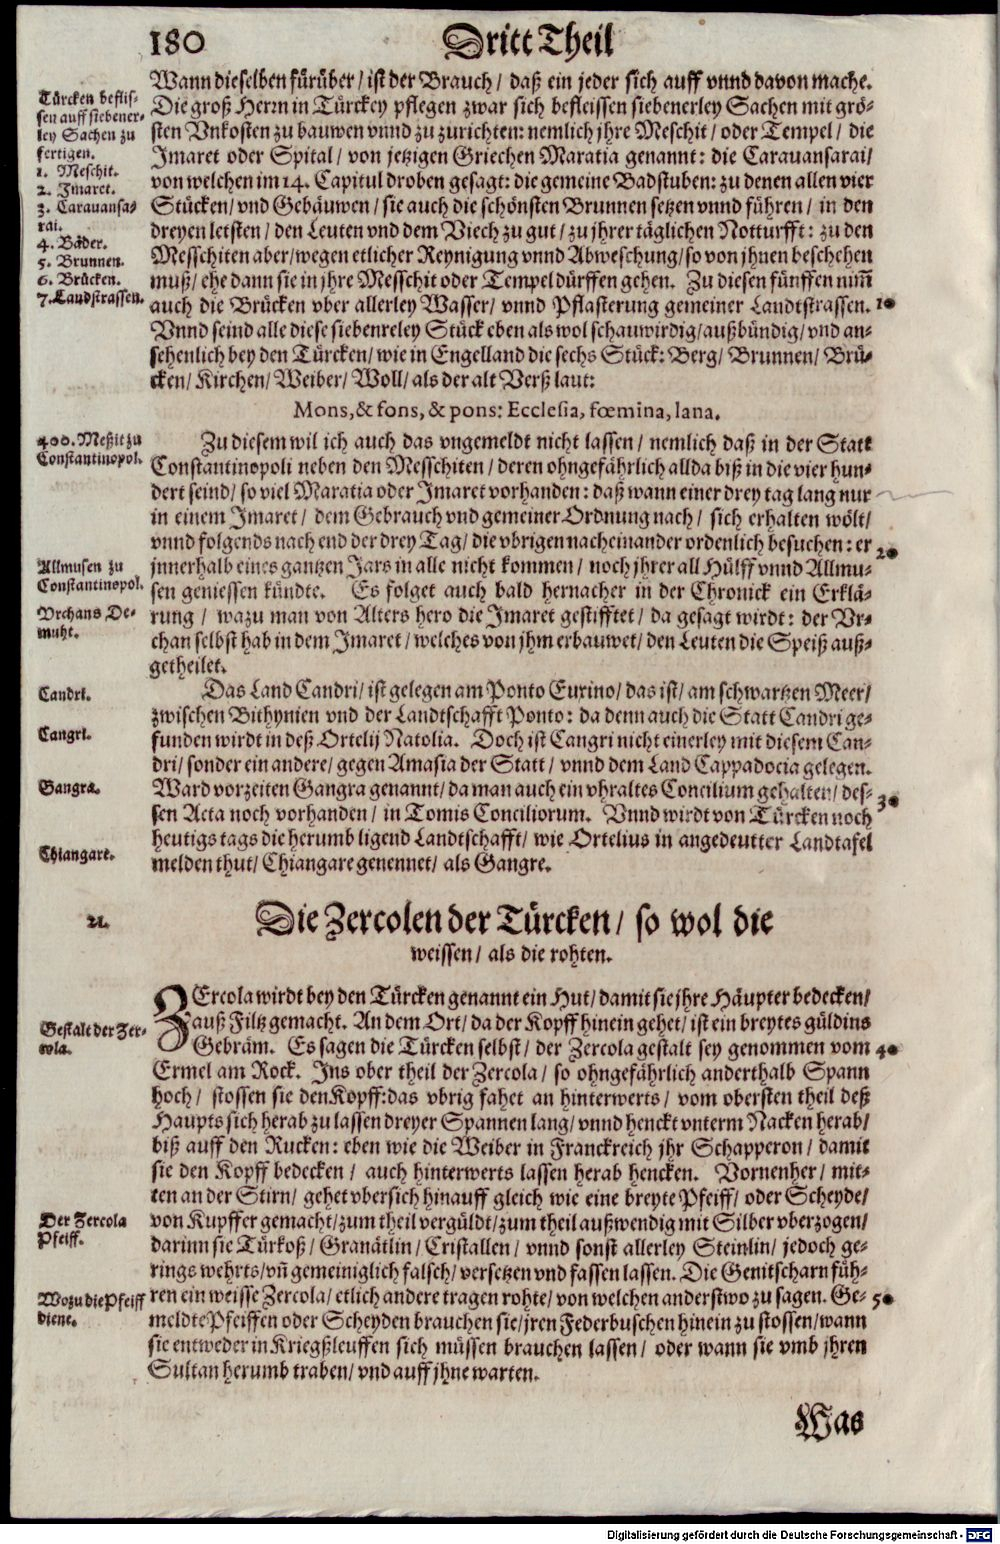 180 Dritt Theil
Wann dieselben fürüber/ ist der Brauch/ daß ein jeder sich auff vnnd davon mache.
Die groß Herrn in Türckey pflegen zwar sich befleissen siebenerley Sachen mit grö-
sten Vnkosten zu bauwen vnnd zu zurichten: nemlich jhre Meschit/ oder Tempel/ die
Imaret oder Spital/ von jetzigen Griechen Maratia genannt: die Carauansarai/
von welchen im 14. Capitul droben gesagt: die gemeine Badstuben: zu denen allen vier
Stücken/ vnd Gebäuwen/ sie auch die schönsten Brunnen setzen vnnd führen/ in den
dreyen letsten/ den Leuten vnd dem Viech zu gut/ zu jhrer täglichen Notturfft: zu den
Messchiten aber/ wegen etlicher Reynigung vnnd Abweschung/ so von jhnen beschehen
muß/ ehe dann sie in jhre Messchit oder Tempel dürffen gehen. Zu diesen fünffen nim̃
auch die Brücken vber allerley Wasser/ vnnd Pflasterung gemeiner Landtstrassen.
Vnnd seind alle diese siebenreley Stück eben als wol schauwirdig/ außbündig/ vnd an-
sehenlich bey den Türcken/ wie in Engelland die sechs Stück: Berg/ Brunnen/ Brü-
cken/ Kirchen/ Weiber/ Woll/ als der alt Verß laut:
Mons, & fons, & pons: Ecclesia, fœmina, lana.
Zu diesem wil ich auch das vngemeldt nicht lassen/ nemlich daß in der Statt
Constantinopoli neben den Messchiten/ deren ohngefährlich allda biß in die vier hun-
dert seind/ so viel Maratia oder Imaret vorhanden: daß wann einer drey tag lang nur
in einem Imaret/ dem Gebrauch vnd gemeiner Ordnung nach/ sich erhalten wölt/
vnnd folgends nach end der drey Tag/ die vbrigen nacheinander ordenlich besuchen: er
jnnerhalb eines gantzen Jars in alle nicht kommen/ noch jhrer all Hülff vnnd Allmu-
sen geniessen kündte. Es folget auch bald hernacher in der Chronick ein Erklä-
rung/ wazu man von Alters hero die Imaret gestifftet/ da gesagt wirdt: der Vr-
chan selbst hab in dem Imaret/ welches von jhm erbauwet/ den Leuten die Speiß auß-
getheilet.
Das Land Candri/ ist gelegen am Ponto Euxino/ das ist/ am schwartzen Meer/
zwischen Bithynien vnd der Landtschafft Ponto: da denn auch die Statt Candri ge-
funden wirdt in deß Ortelij Natolia. Doch ist Cangri nicht einerley mit diesem Can-
dri/ sonder ein andere/ gegen Amasia der Statt/ vnnd dem Land Cappadocia gelegen.
Ward vorzeiten Gangra genannt/ da man auch ein vhraltes Concilium gehalten/ des-
sen Acta noch vorhanden/ in Tomis Conciliorum. Vnnd wirdt von Türcken noch
heutigs tags die herumb ligend Landtschafft/ wie Ortelius in angedeutter Landtafel
melden thut/ Chiangare genennet/ als Gangre.
Die Zercolen der Türcken/ so wol die
weissen/ als die rohten.
ZErcola wirdt bey den Türcken genannt ein Hut/ damit sie jhre Häupter bedecken/
auß Filtz gemacht. An dem Ort/ da der Kopff hinein gehet/ ist ein breytes güldins
Gebräm. Es sagen die Türcken selbst/ der Zercola gestalt sey genommen vom
Ermel am Rock. Ins ober theil der Zercola/ so ohngefährlich anderthalb Spann
hoch/ stossen sie den Kopff: das vbrig fahet an hinterwerts/ vom obersten theil deß
Haupts sich herab zu lassen dreyer Spannen lang/ vnnd henckt vnterm Nacken herab/
biß auff den Rucken: eben wie die Weiber in Franckreich jhr Schapperon/ damit
sie den Kopff bedecken/ auch hinterwerts lassen herab hencken. Vornenher/ mit-
ten an der Stirn/ gehet vbersich hinauff gleich wie eine breyte Pfeiff/ oder Scheyde/
von Kupffer gemacht/ zum theil vergüldt/ zum theil außwendig mit Silber vberzogen/
darinn sie Türkoß/ Granätlin/ Cristallen/ vnnd sonst allerley Steinlin/ jedoch ge-
rings wehrts/ vñ gemeiniglich falsch/ versetzen vnd fassen lassen. Die Genitscharn füh-
ren ein weisse Zercola/ etlich andere tragen rohte/ von welchen anderstwo zu sagen. Ge-
meldte Pfeiffen oder Scheyden brauchen sie/ jren Federbuschen hinein zu stossen/ wann
sie entweder in Kriegßleuffen sich müssen brauchen lassen/ oder wann sie vmb jhren
Sultan herumb traben/ vnd auff jhne warten.
Was
Türcken beflis-
sen auff siebener-
ley Sachen zu
fertigen.
1. Meschit.
2. Imaret.
3. Carauansa-
rai.
4. Bäder.
5. Brunnen.
6. Brücken.
7. Landstrassen.
400. Meßit zu
Constantinopol.
Allmusen zu
Constantinopol.
Vrchans De-
muht.
Candri.
Cangri.
Gangra.
Chiangare.
21.
Gestalt der Zer-
cola.
Der Zercola
Pfeiff.
Wozu die Pfeiff
diene.
10
20
30
40
50
Digitalisierung gefördert durch die Deutsche Forschungsgemeinschaft - DFG